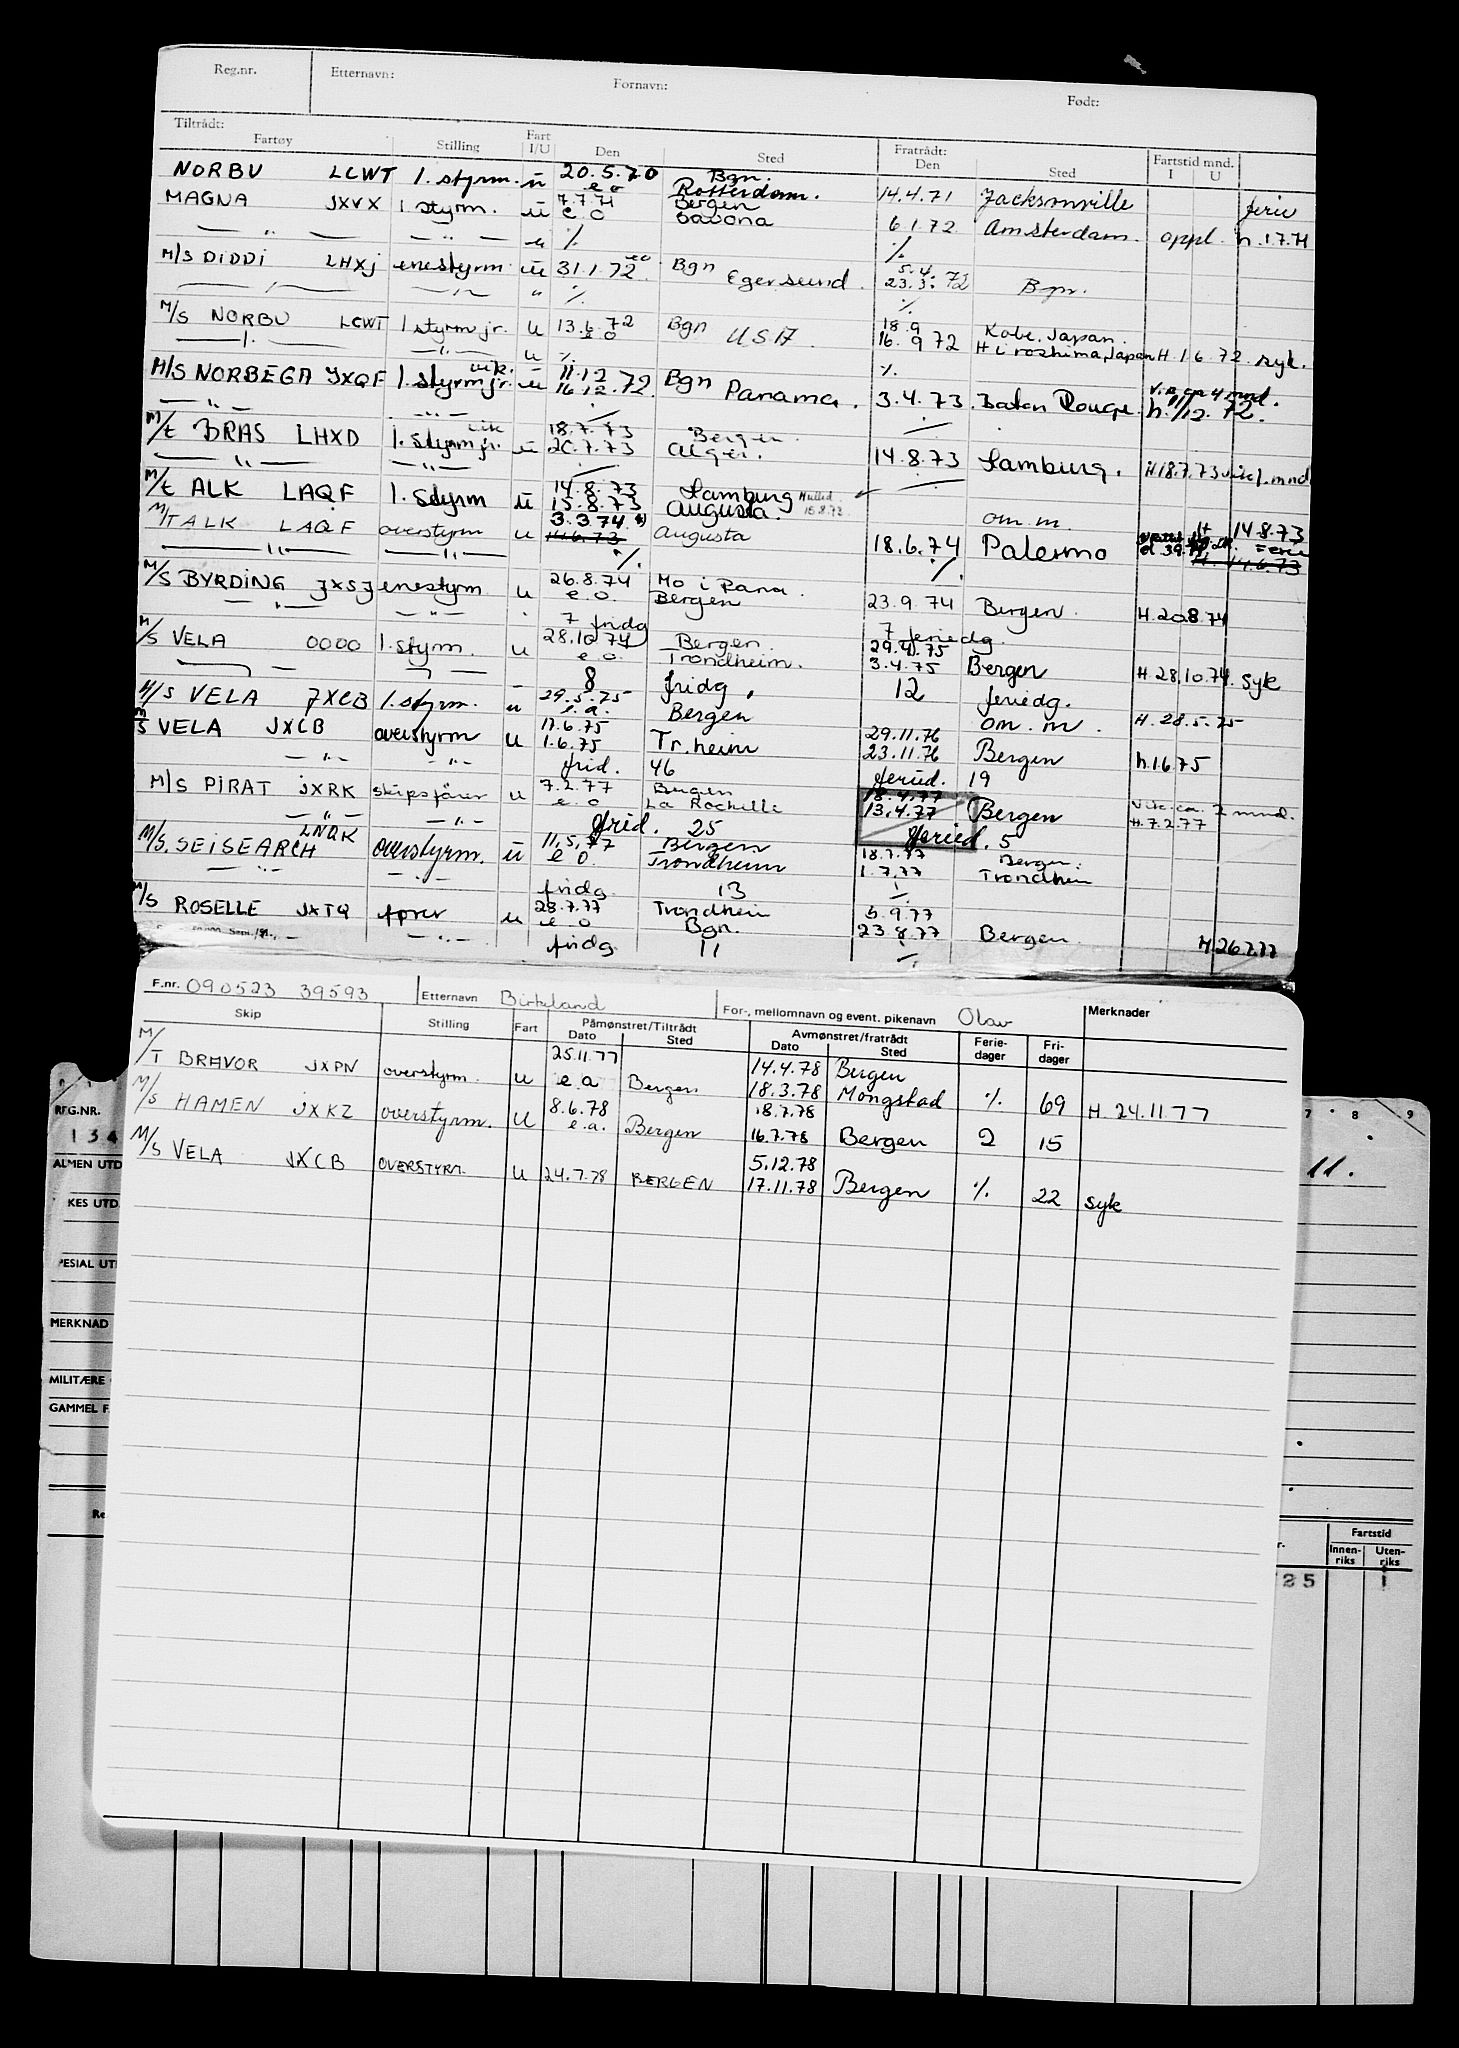 Reg.nr. Etternavn: Fornavn: Født:
Tiltrådt: Fartøy Stilling Fart I/U Den Sted Fratrådt: Den Sted Fartstid mnd. I U
NORBU LCWT 1. styrm. u 20.5.70 Bgn.
e o Rotterdam. 14.4.71 Jacksonville ferie
MAGNA JXVX 1 styrm. u 7.7.71 Bergen
e o Savona 6 1.72 Amsterdam. oppl. h.1.7.71
— " — — " — u % %
M/S DIDDI LHXJ enestyrm. u 31.1.72 eo Bgn Egersund. 5.4.72
23.3.72 Bgn.
" % %
M/S NORBU LCWT 1 styrm jr. u 13.6.72 Bgn USA. 18.9 Kobe. Japan.
e o 16.9 72 Hiroshima, Japan H.1.6.72. syk.
u % %
M/S NORBEGA JXQF 1. styrm jr. vik. u 11.12
16.12.72 Bgn Panama. 3.4.73. Baton Rouge. h. 1/12. 72.
M/T BRAS LHXD 1. styrm jr. vik u 18.7.73 Bergen.
20.7.73 Alger. 14.8.73 Hamburg. H.18.7.73 vik 1. mnd
M/T ALK LAQF 1. styrm u 14.8.73 Hamburg
15.8.73 Augusta. om.m. H 14.8.73
M/T ALK LAQF overstyrm u 3.3.74 Augusta 18.6.74 Palermo Ferie
14.6.73 14.6.73
— " — — " — % %
M/S BYRDING JXSJ enestyrm u 26.8.74 Mo i Rana.
e.o. Bergen 23.9.74 Bergen. H.20.8.74
7 fridg 7 feriedg.
M/S VELA 0000 1. styrm. u 28.10.74 Bergen. 29.4.75
e.o. Trondheim. 3.4.75 Bergen H.28.10.74. syk
8 fridg. 12 feriedg.
M/S VELA JXCB 1. styrm. u 29.5.75
e.a. Bergen om. m. H. 28.5.75
M/S VELA JXCB overstyrm u 17.6.75
1.6.75 Tr.heim 29.11.76
23.11.76 Bergen h.1.6.75
— " — — " — frid. 46 feried. 19
M/S PIRAT JXRK skipsfører u 7.2.77 Bergen 18.4.77
e o La Rochelle 13.4.77 Bergen vik. ca. 2 mnd.
H.7.2.77
— " — — " — frid. 25 feried. 5
M/S. SEISEARCH LNQK overstyrm. u 11.5.77 Bergen 18.7.77 Bergen.
e o. Trondheim 1.7.77 Trondheim
fridg. 13 %
M/S ROSELLE JXTQ fører u 28.7.77 Trondheim 5.9.77
e o Bgn. 23 8.77 Bergen. H 26.7.77
fridg 11 %
F.nr. 090523 39593 Etternavn Birkeland For-, mellomnavn og event. pikenavn Olav Merknader
Skip Stilling Fart Påmønstret/Tiltrådt Dato Sted Avmønstret/fratrådt Dato Sted Ferie-dager Fri-dager
M/T BRAVOR JXPN overstyrm. u 25.11.77
e a Bergen 14.4.78 Bergen
18.3.78 Mongstad % 69 H. 24.11.77
M/S HAMEN JXKZ overstyrm. u 8.6.78
e.a. Bergen 18.7.78
16.7.78 Bergen 2 15
M/S VELA JXCB OVERSTYRM. u 24.7.78 BERGEN 5.12.78
17.11.78 Bergen % 22 syk
REG.NR.
1 3 4
7 8 9
11.
ALMEN UTD
KES UTD.
PESIAL UT
MERKNAD
MILITÆRE
GAMMEL F
Fartstid
Innen-riks Uten-riks
25 1